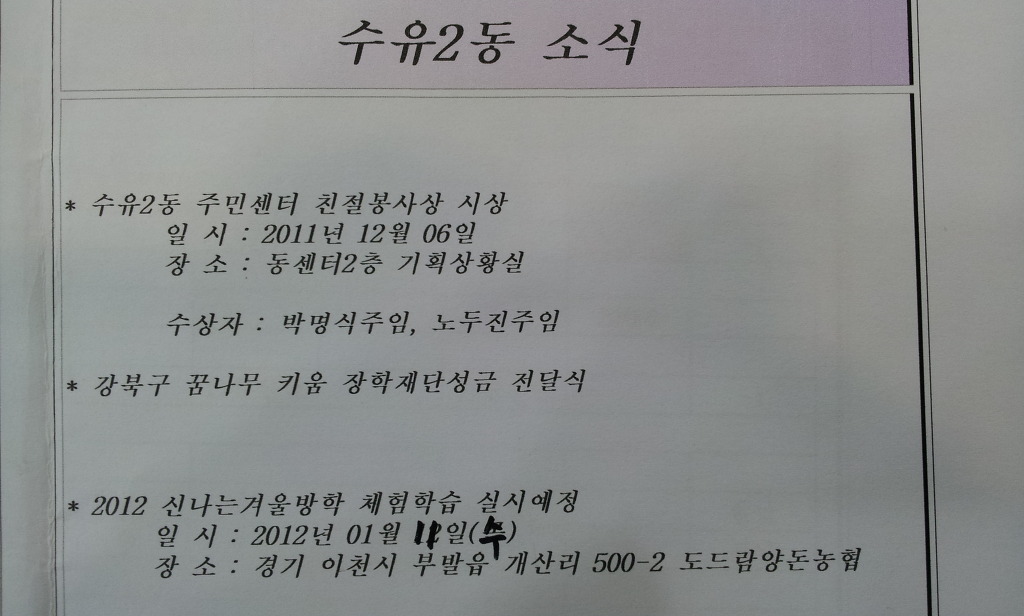 수유2동 소식
* 수유2동 주민센터 친절봉사상 시상
일 시 : 2011년 12월 06일
장 소 : 동센터2층 기획상황실
수상자 : 박명식주임, 노두진주임
* 강북구 꿈나무 키움 장학재단성금 전달식
* 2012 신나는겨울방학 체험학습 실시예정
일 시 : 2012년 01월 11일(수)
장 소 : 경기 이천시 부발읍 개산리 500-2 도드람양돈농협